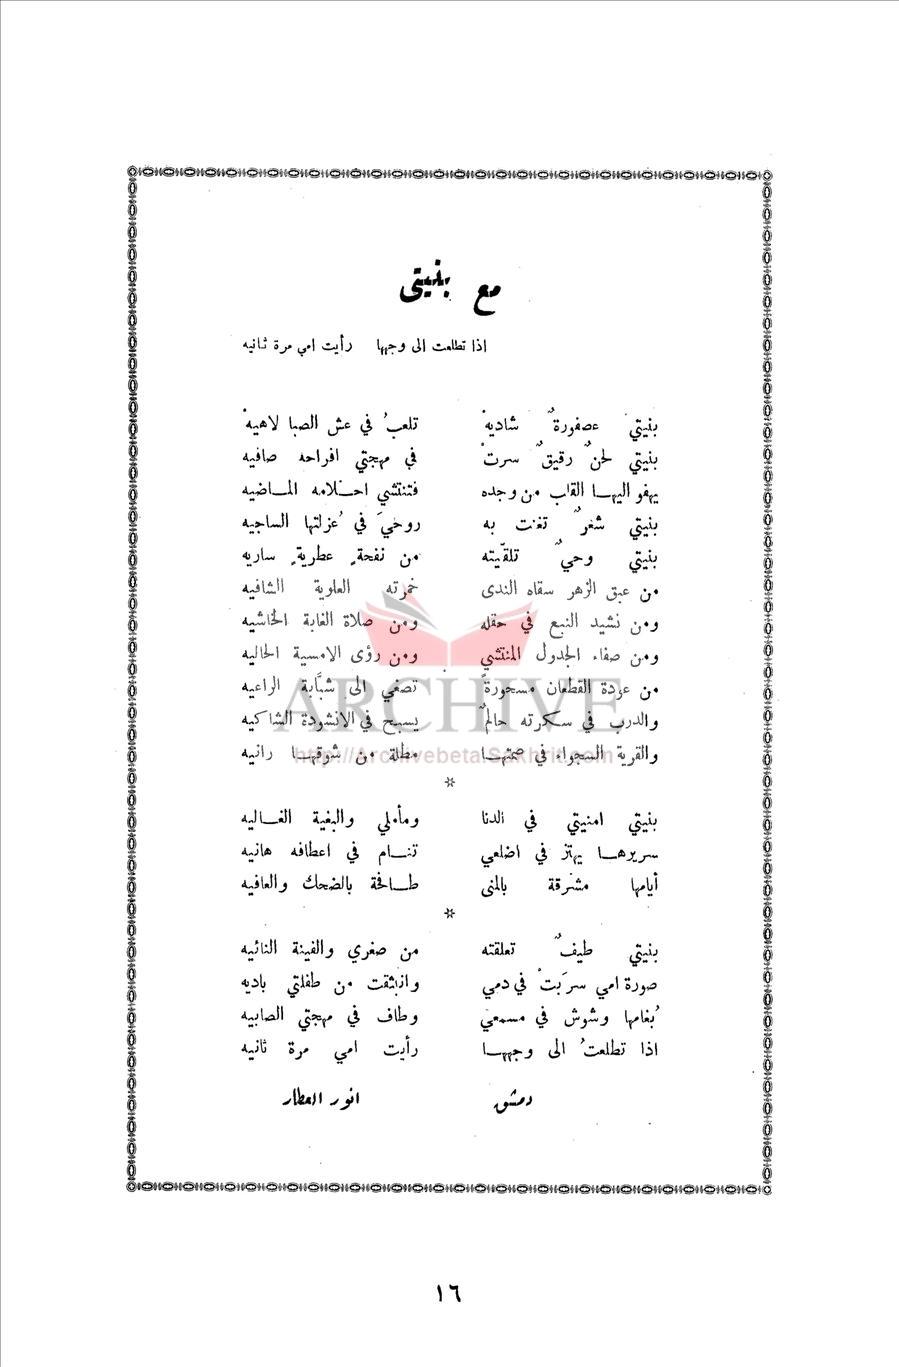 مع بنيتي
اذا تطلعت الى وجهها رأيت امي مرة ثانيه
بنيتي عصفورةٌ شاديهْ تلعبُ في عش الصبا لاهيهْ
بنيتي لحنٌ رقيقٌ سرتْ في مهجتي افراحه صافيه
يهفو اليهـا القلب من وجده فتنتشي احـلامه المـاضيه
بنيتي شعرٌ تغنت به روحيَ في عُزلتها الساجيه
بنيتي وحيٌ تلقّيته من نفحةٍ عطريةٍ ساريه
من عبق الزهر سقاه الندى خمرته العلوية الشافيه
ومن نشيد النبع في حقله ومن صلاة الغابة الخاشيه
ومن صفاء الجدول المنتشي ومن رؤى الامسية الحاليه
من عودة القطعان مسحورةً تصغي الى شبَّابة الراعيه
والدرب في سكرته حالمٌ يسبح في الانشودة الشاكيه
والقرية السجواء في صمتهـا مطلة من شوقهـا رانيه
*
بنيتي امنيتي في الدنا ومأملي والبغية الغـاليه
سريرهـا يهتز في اضلعي تنـام في اعطافه هانيه
أيامها مشرقة بالمنى طـافحة بالضحك والعافيه
*
بنيتي طيفٌ تعلقته من صغري والفينة النائيه
صورة امي سرَبتْ في دمي وانبثقت من طفلتي باديه
بُغامها وشوش في مسمعي وطاف في مهجتي الصابيه
اذا تطلعتُ الى وجههـا رأيت امي مرة ثانيه
دمشق انور العطار
ARCHIVE
http://Archivebeta.Sakhrit.com
١٦